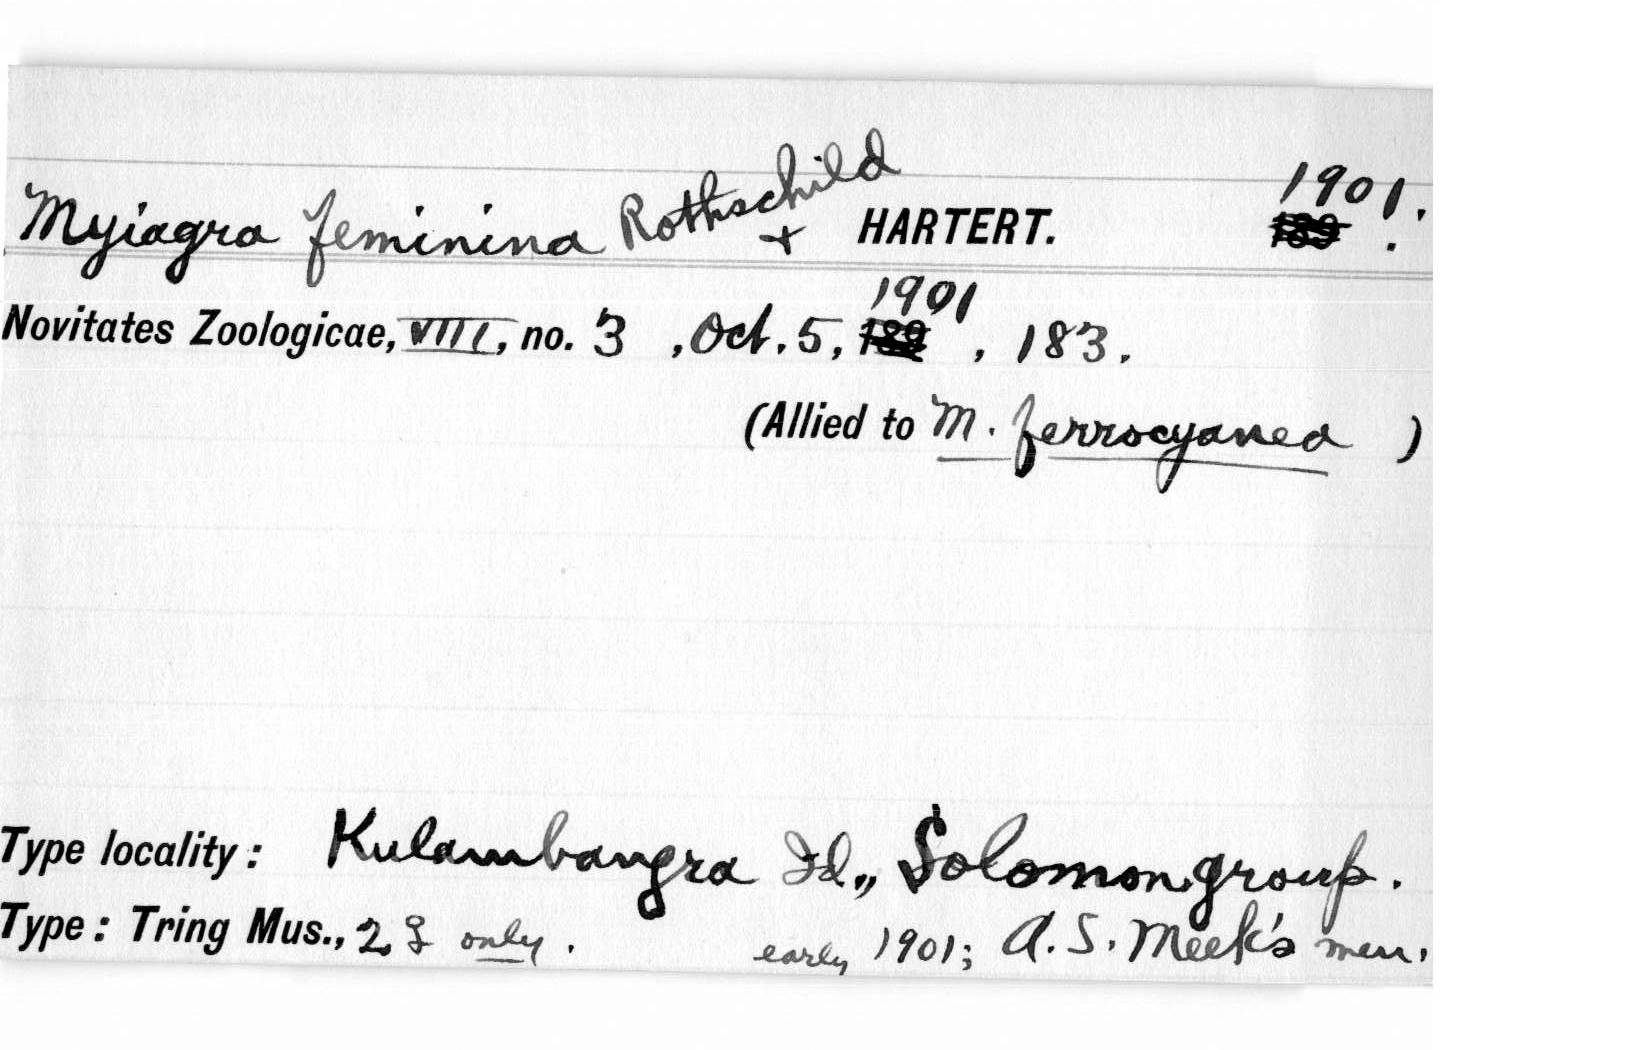 Myiagra feminina Rothschild + HARTERT. 1901.
Novitates Zoologicae, VIII, no. 3, Oct. 5, 1901, 183.
(Allied to M. ferrocyanea )
Type locality: Kulambangra Id., Solomon group.
Type: Tring Mus., 2 ♀ only. early 1901; A. S. Meek's men.